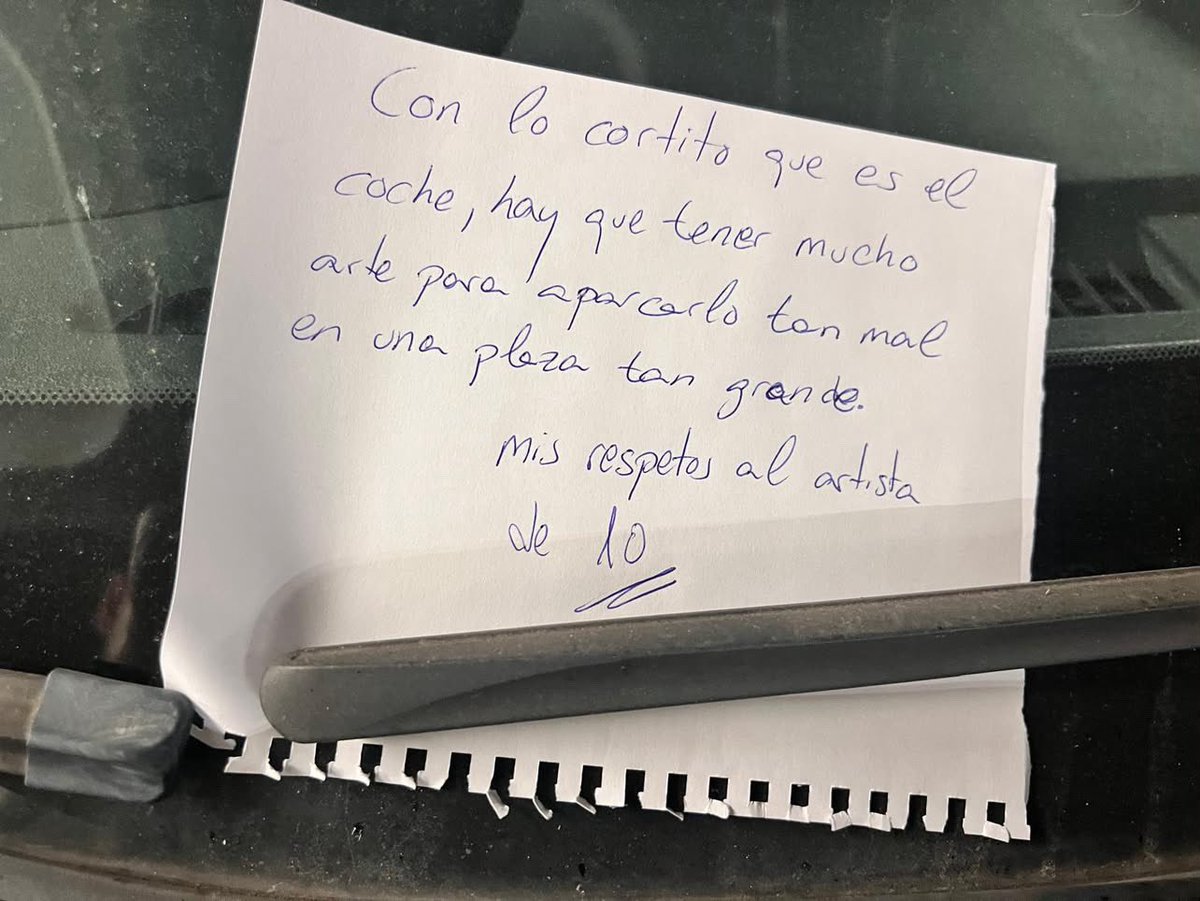 Con lo cortito que es el
coche, hay que tener mucho
arte para aparcarlo tan mal
en una plaza tan grande.
Mis respetos al artista
de 10